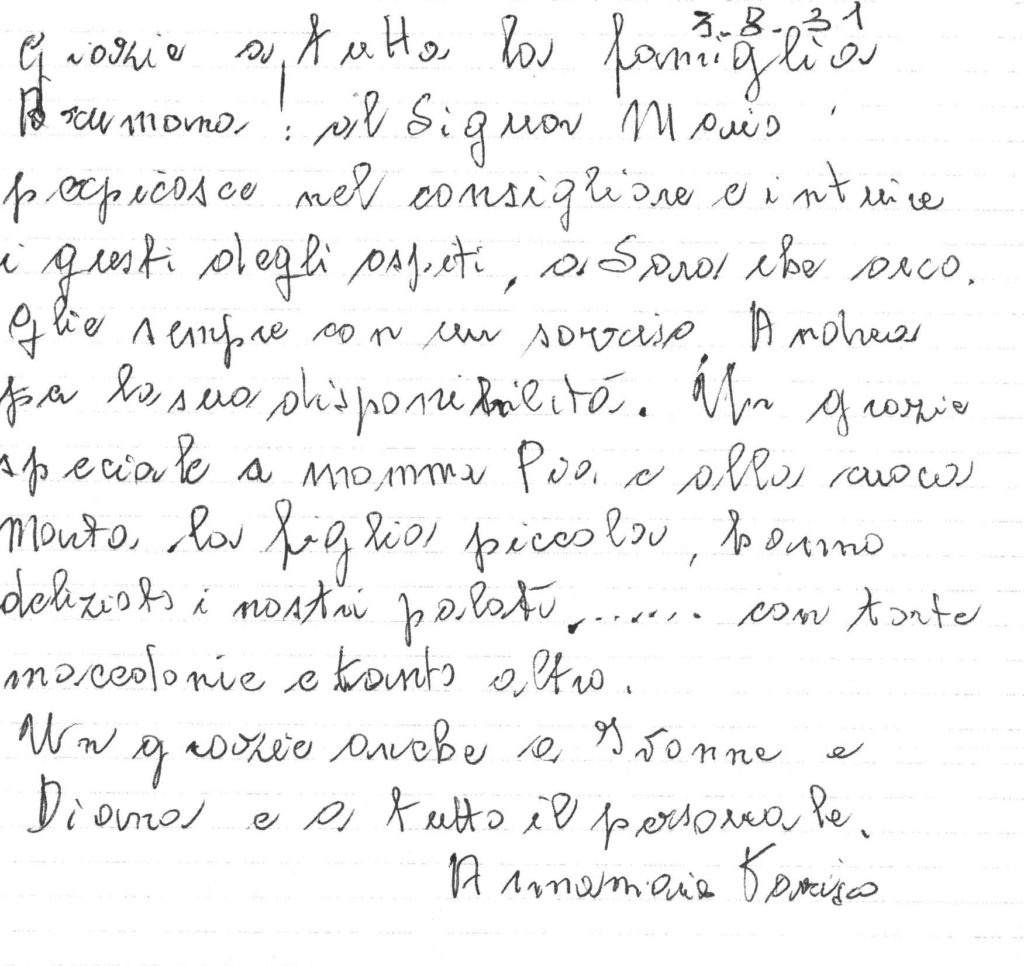 3-8-31
Grazie a tutta la famiglia
Arumana! al Signor Mario
perpicace nel consigliare e intuire
i gusti degli ospiti, a Sara che acco.
glie sempre con un sorriso Andrea
per la sua disponibilità. Un grazie
speciale a mamma Pia e alla cuoca
Marta la figlia piccola, hanno
deliziato i nostri palati....... con torte
macedonie e tanto altro.
Un grazie anche a Ivonne e
Diana e a tutto il personale.
Annamaria